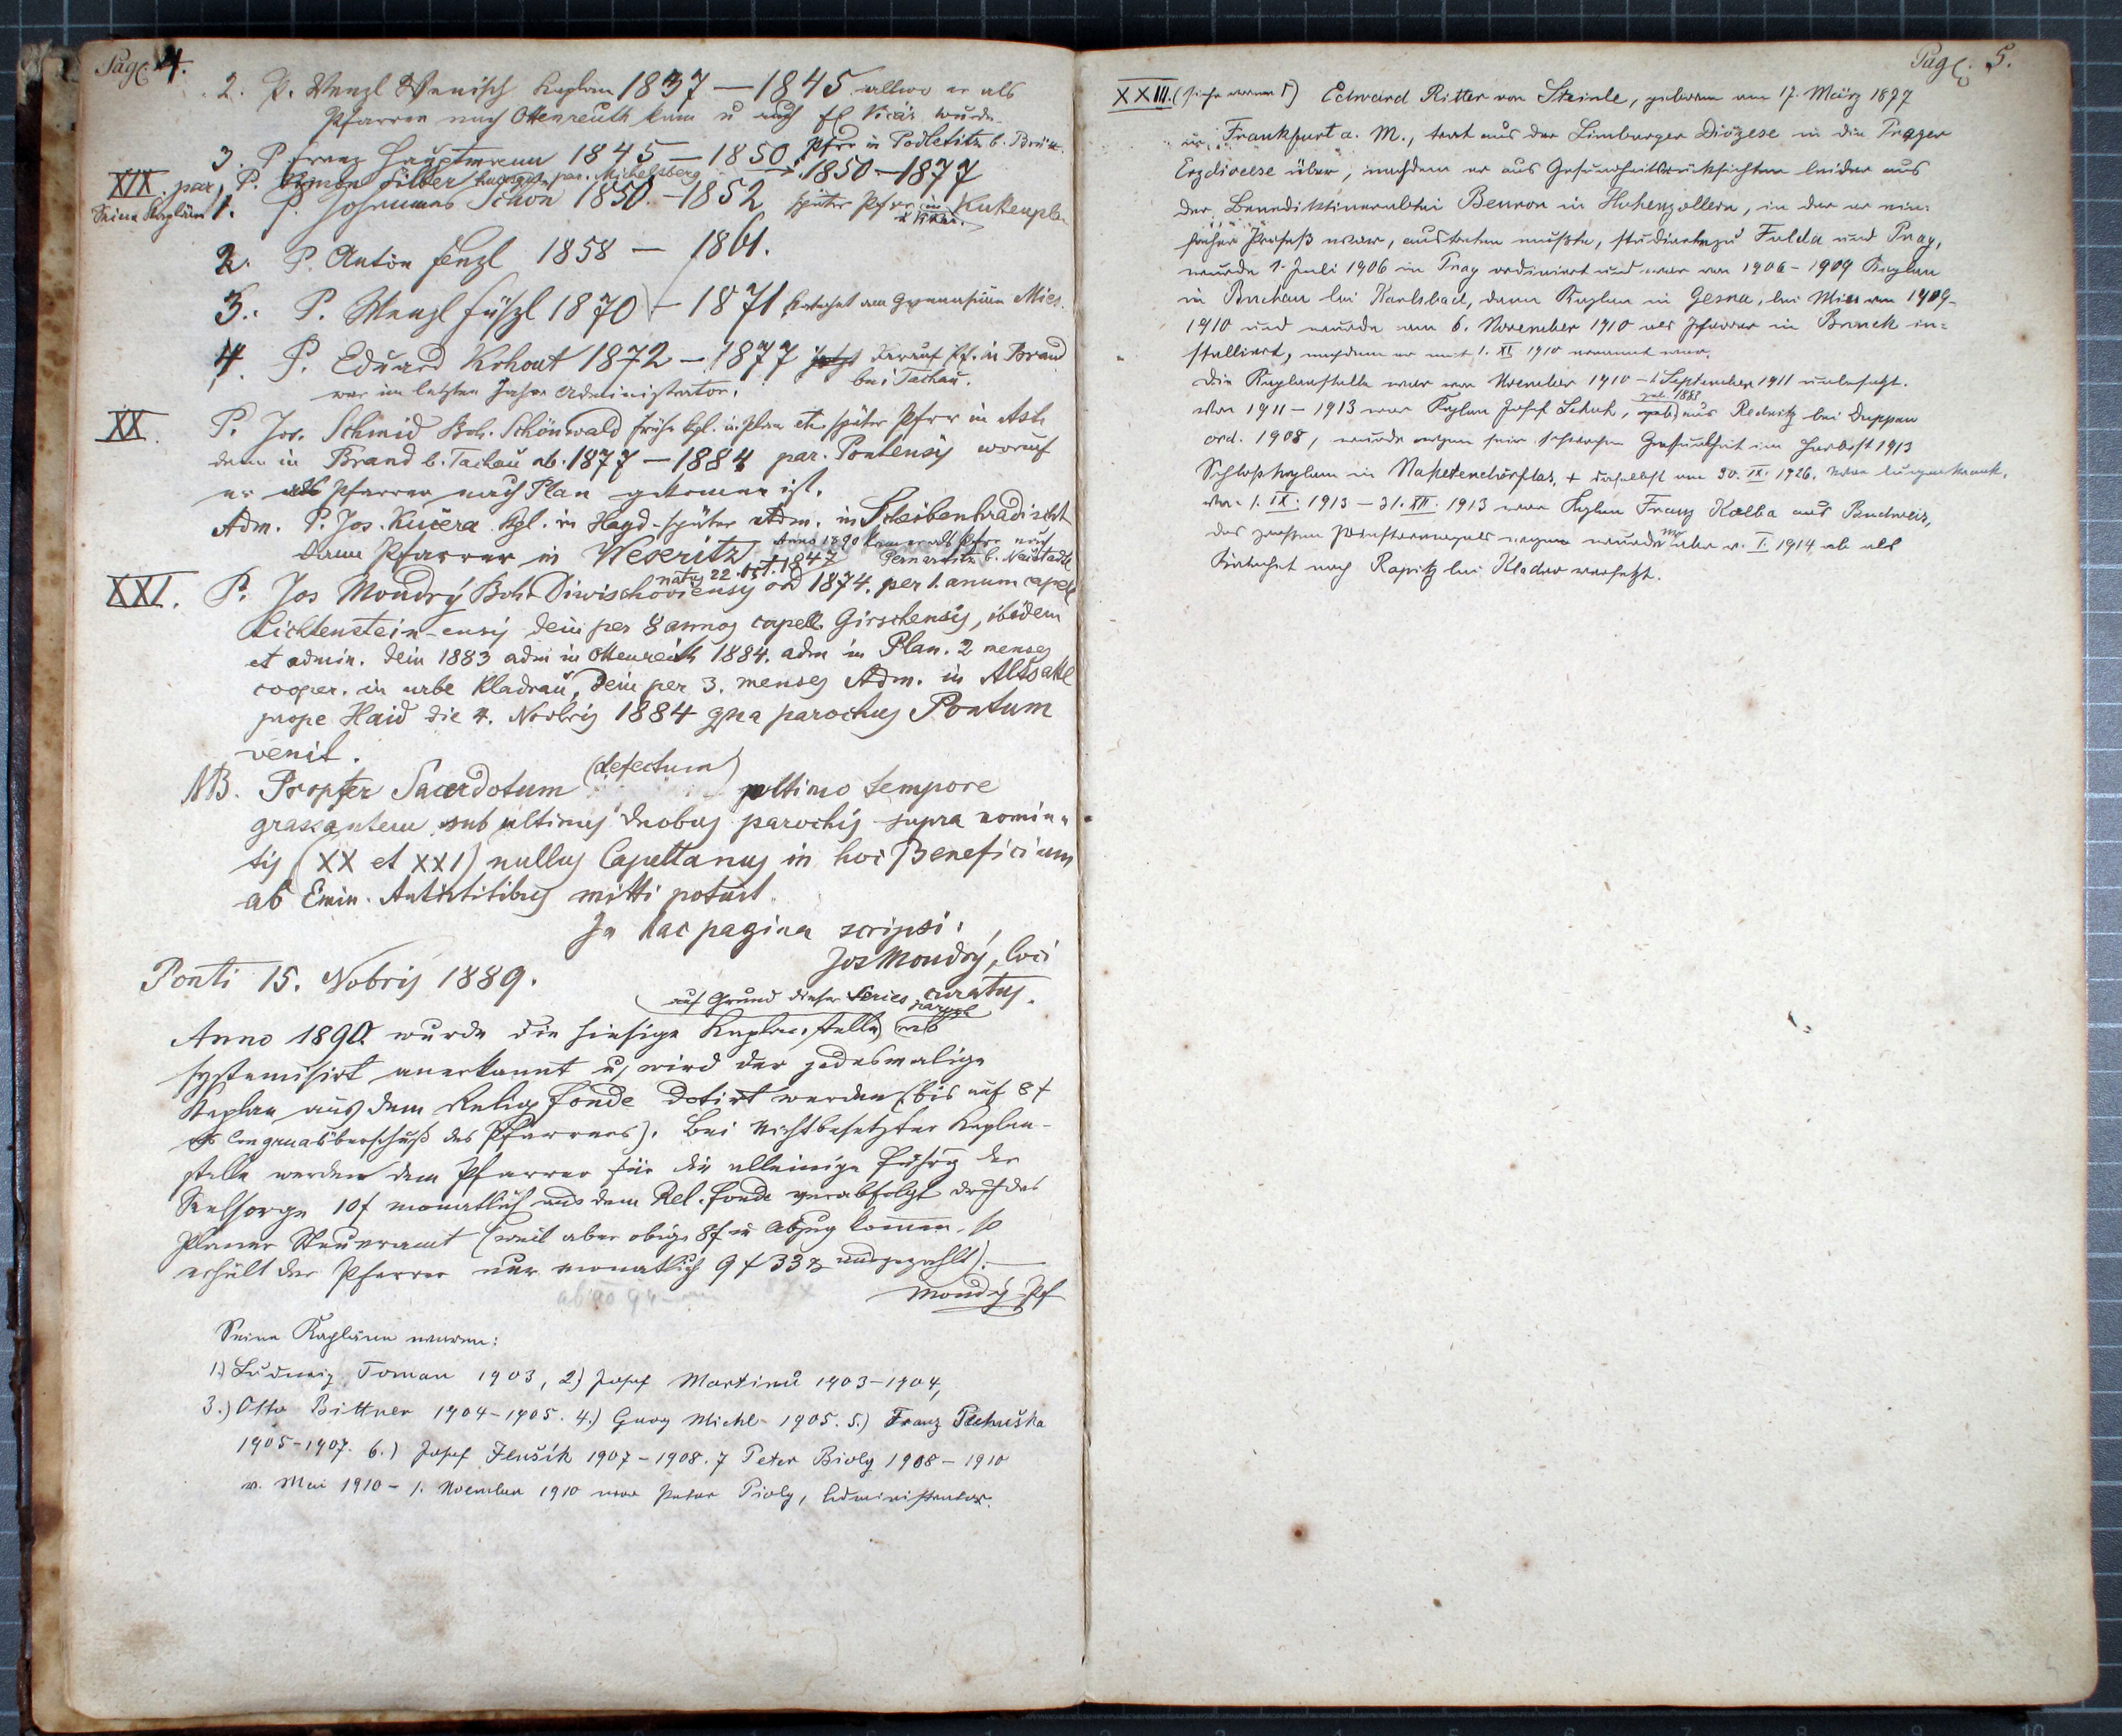 Pag. 4.
2. P. Wenzl Wenisch Kaplan 1837 — 1845 allwo er als
Pfarrer nach Ottenreuth kam u auch Vicär wurde.
3. P. Franz Hauptmann 1845 — 1850 Pfrr in Podletitz b.
XIX. par. P. Simon Silber par. Michelsberg 1850 — 1877
Seine Kapläne 1. P. Johannes Schön 1850. — 1852 später Pfrrer in Kuttenplan
2. P. Anton Fenzl 1858 — 1861.
3. P. Wenzl Füssl 1870 — 1871 Katechet am Gymnasium Mies.
4. P. Eduard Kohout 1872 — 1877 darauf Pf. in Brand
bei Tachau.
war im letzten Jahre Administrator.
XX. P. Jos. Schmid Boh. Schönwald früher Kpl. in Plan etc später Pfrr in Asch
dann in Brand b. Tachau ab. 1877 — 1884 par. Pontensis worauf
er als Pfarrer nach Plan gekommen ist.
Adm. P. Jos. Kučera Kpl. in Hayd - später Adm. in Scheibenhradischt
dann Pfarrer in Weseritz Anno 1890 kam er als Pfrr nach
b. Neustadtl
natus 22. oct. 1847
XXI. P. Jos Moudrý Boh. Diwischoviensis ord 1874. per 1. anum capell.
Lichtenstein-ensis dein per 8 annos capell. Girschensis, ibidem
et admin. dein 1883 adm in Ottenreith 1884. adm in Plan. 2 menses
cooper. in urbe Kladrau, dein per 3. menses Adm. in Altsattl
prope Haid die 4. Novbris 1884 qua parochus Pontum
venit.
NB. Propter Sacerdotum (defectum) ultimo tempore
grassantem sub ultimis duobus parochis supra nomina-
tis (XX et XXI) nullus Capellanus in hoc Beneficium
ab Emin. Antistitibus mitti potuit.
In hac pagina scripsi:
Jos Moudrý, loci
curatus.
Ponti 15. Nobris 1889.
auf Grund dieser Series
Anno 1890 wurde die hiesige Kaplanstelle als
systemisirt anerkannt u. wird der jedesmalige
Kaplan aus dem Religfonde dotirt werden (bis auf 8 f
Congruaüberschuß des Pfarrers). Bei nichtbesetzter Kaplan-
stelle werden dem Pfarrer für die alleinige Führg der
Seelsorge 10 f monatlich aus dem Rel. fonde verabfolgt durch das
Planer Steueramt (weil aber obige 8 f in Abzug kommen, so
erhält der Pfarrer nur monatlich 9 f 33 x ausgezahlt). —
Moudrý Pf
Seine Kapläne waren:
1.) Ludwig Toman 1903, 2.) Josef Martinů 1903-1904,
3.) Otto Bittner 1904-1905. 4.) Georg Michl 1905. 5.) Franz Pechuška
1905-1907. 6.) Josef Jlušik 1907-1908. 7 Peter Bioly 1908-1910
v. Mai 1910 - 1. November 1910 war Peter Pioly, Administrator.
Pag. 5.
XXIII. (siehe vorne 1) Edward Ritter von Steinle, geboren am 17. März 1877
in Frankfurt a. M., trat aus der Limburger Diözese in die Prager
Erzdiöcese über, nachdem er aus Gesundheitsrücksichten leider aus
der Benediktinerabtei Beuron in Hohenzollern, in der er ein-
facher Profeß war, austreten mußte, studierte zu Fulda und Prag,
wurde 1. Juli 1906 in Prag ordiniert und war von 1906-1909 Kaplan
in Buchau bei Karlsbad, dann Kaplan in Gesna, bei Mies von 1909-
1910 und wurde am 6. November 1910 als Pfarrer in Bruck in-
stalliert, nachdem er mit 1. XI 1910 ernannt war.
Die Kaplanstelle war von November 1910 - 1. September 1911 unbesetzt.
geb. 1883
Von 1911-1913 war Kaplan Josef Schuh, aus Rednitz bei Duppau
ord. 1908, wurde wegen sein. schwachen Gesundheit im Herbst 1913
Schloßkaplan in Nasketendörflas, + daselbst am 30. IX. 1926. War lungenkrank.
Von 1. IX. 1913 - 31. XII. 1913 war Kaplan Franz Kolba aus Budweis,
des großen Priestermangels wegen wurde er aber v. I. 1914 ab als
Katechet nach Rapitz bei Kladno versetzt.